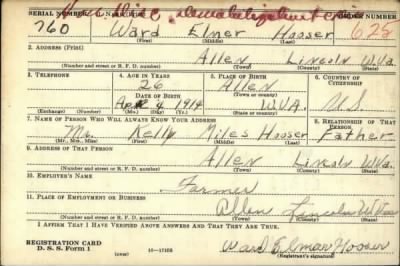 SERIAL NUMBER 1. NAME (Print) ORDER NUMBER
Hon. Disc.
760 Ward Elmer Hooser 625
(First) (Middle) (Last)
2. ADDRESS (Print)
Allen Lincoln W.Va.
(Number and street or R. F. D. number) (Town) (County) (State)
3. TELEPHONE 4. AGE IN YEARS 5. PLACE OF BIRTH 6. COUNTRY OF CITIZENSHIP
26 Allen
DATE OF BIRTH (Town or county)
Apr 4 1914 W.VA. U.S.
(Exchange) (Number) (Mo.) (Day) (Yr.) (State or country)
7. NAME OF PERSON WHO WILL ALWAYS KNOW YOUR ADDRESS 8. RELATIONSHIP OF THAT PERSON
Mr. Kelly Miles Hooser Father
(Mr., Mrs., Miss) (First) (Middle) (Last)
9. ADDRESS OF THAT PERSON
Allen Lincoln W.Va.
(Number and street or R. F. D. number) (Town) (County) (State)
10. EMPLOYER'S NAME
Farmer
11. PLACE OF EMPLOYMENT OR BUSINESS
Allen Lincoln W.Va
(Number and street or R. F. D. number) (Town) (County) (State)
I AFFIRM THAT I HAVE VERIFIED ABOVE ANSWERS AND THAT THEY ARE TRUE.
REGISTRATION CARD
D. S. S. Form 1 16—17105 Ward Elmar Hooser